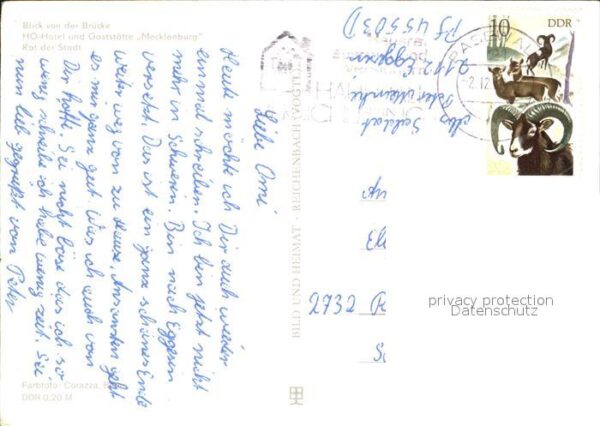 Blick von der Brücke
HO-Hotel und Gaststätte „Mecklenburg"
Rat der Stadt
Liebe Omi
Heute möchte ich Dir auch wieder
einmal schreiben. Ich bin jetzt nicht
mehr in Schwerin. Bin nach Eggesin
versetzt. Das ist ein ganz schönes Ende
weiter weg von zu Hause. Ansonsten geht
es mir ganz gut. Was ich auch von
Dir hoffe. Sei nicht böse das ich so
wenig schreibe ich habe wenig Zeit. Sei
nun lieb gegrüßt von Peter
Farbfoto: Corazza,
DDR 0,20 M
BILD UND HEIMAT · REICHENBACH (VOGTL
Abs Soldat
Peter
2112 Eggesin
PF 45503 D
10
DDR
PASEWALK
2.12
2732
privacy protection
Datenschutz